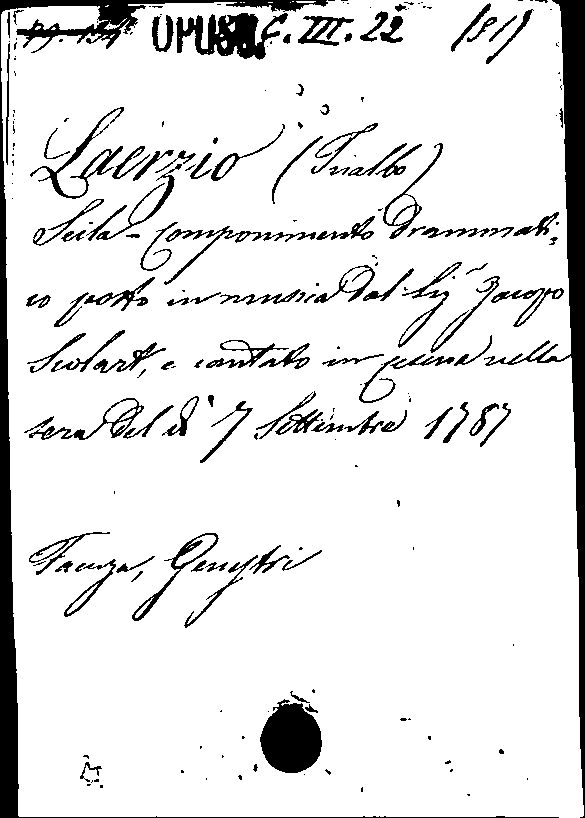 OPUSC. C. III. 22 (81)
Laerzio (Trialbo)
Scila - Componimento drammati-
co posto in musica dal Sigr Jacopo
Scolart, e cantato in Cesena nella
sera del dì 7 Settembre 1787
Faenza, Genestri